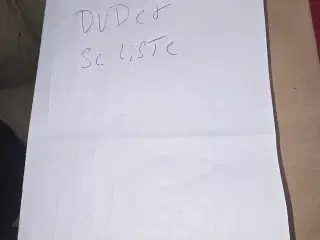 DVDer
Se LiSTe